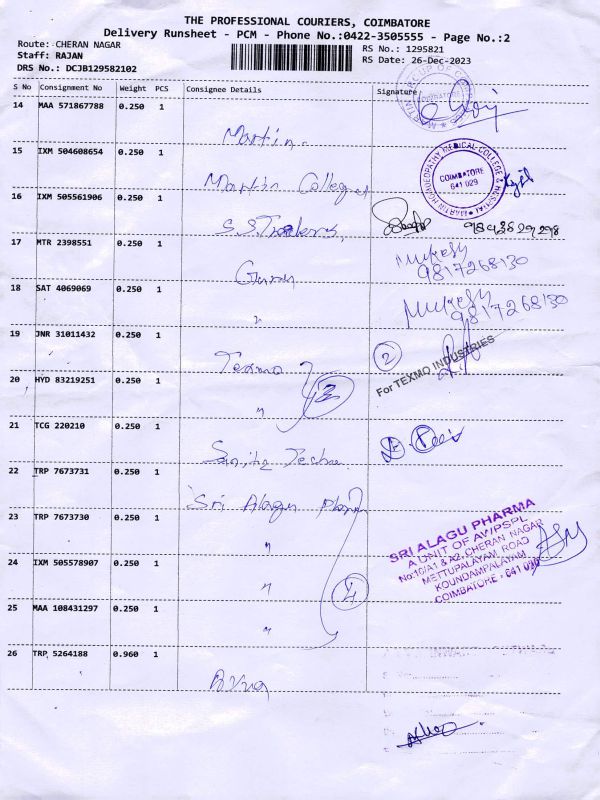 THE PROFESSIONAL COURIERS, COIMBATORE
Delivery Runsheet - PCM - Phone No.:0422-3505555 - Page No.:2
Route: CHERAN NAGAR
RS No.: 1295821
Staff: RAJAN
RS Date: 26-Dec-2023
DRS No.: DCJB129582102
S No Consignment No Weight PCS Consignee Details Signature
14 MAA 571867788 0.250 1
Martin.
COIMBATORE
15 IXM 504608654 0.250 1
Martin College
MARTIN HOMOEOPATHY MEDICAL COLLEGE & HOSPITAL
COIMBATORE
641 029
16 IXM 505561906 0.250 1
S.S. Traders,
17 MTR 2398551 0.250 1
Mukesh
9817268130
18 SAT 4069069 0.250 1
"
Mukesh
9817268130
19 JNR 31011432 0.250 1
Texmo
2
For TEXMO INDUSTRIES
20 HYD 83219251 0.250 1
"
21 TCG 220210 0.250 1
22 TRP 7673731 0.250 1
Sri Alagu Pharm
23 TRP 7673730 0.250 1
"
SRI ALAGU PHARMA
A UNIT OF AWPSPL
No:10/A1 & A2, CHERAN NAGAR
METTUPALAYAM ROAD
KOUNDAMPALAYAM
COIMBATORE - 641 030
24 IXM 505578907 0.250 1
"
4
25 MAA 108431297 0.250 1
"
26 TRP 5264188 0.960 1